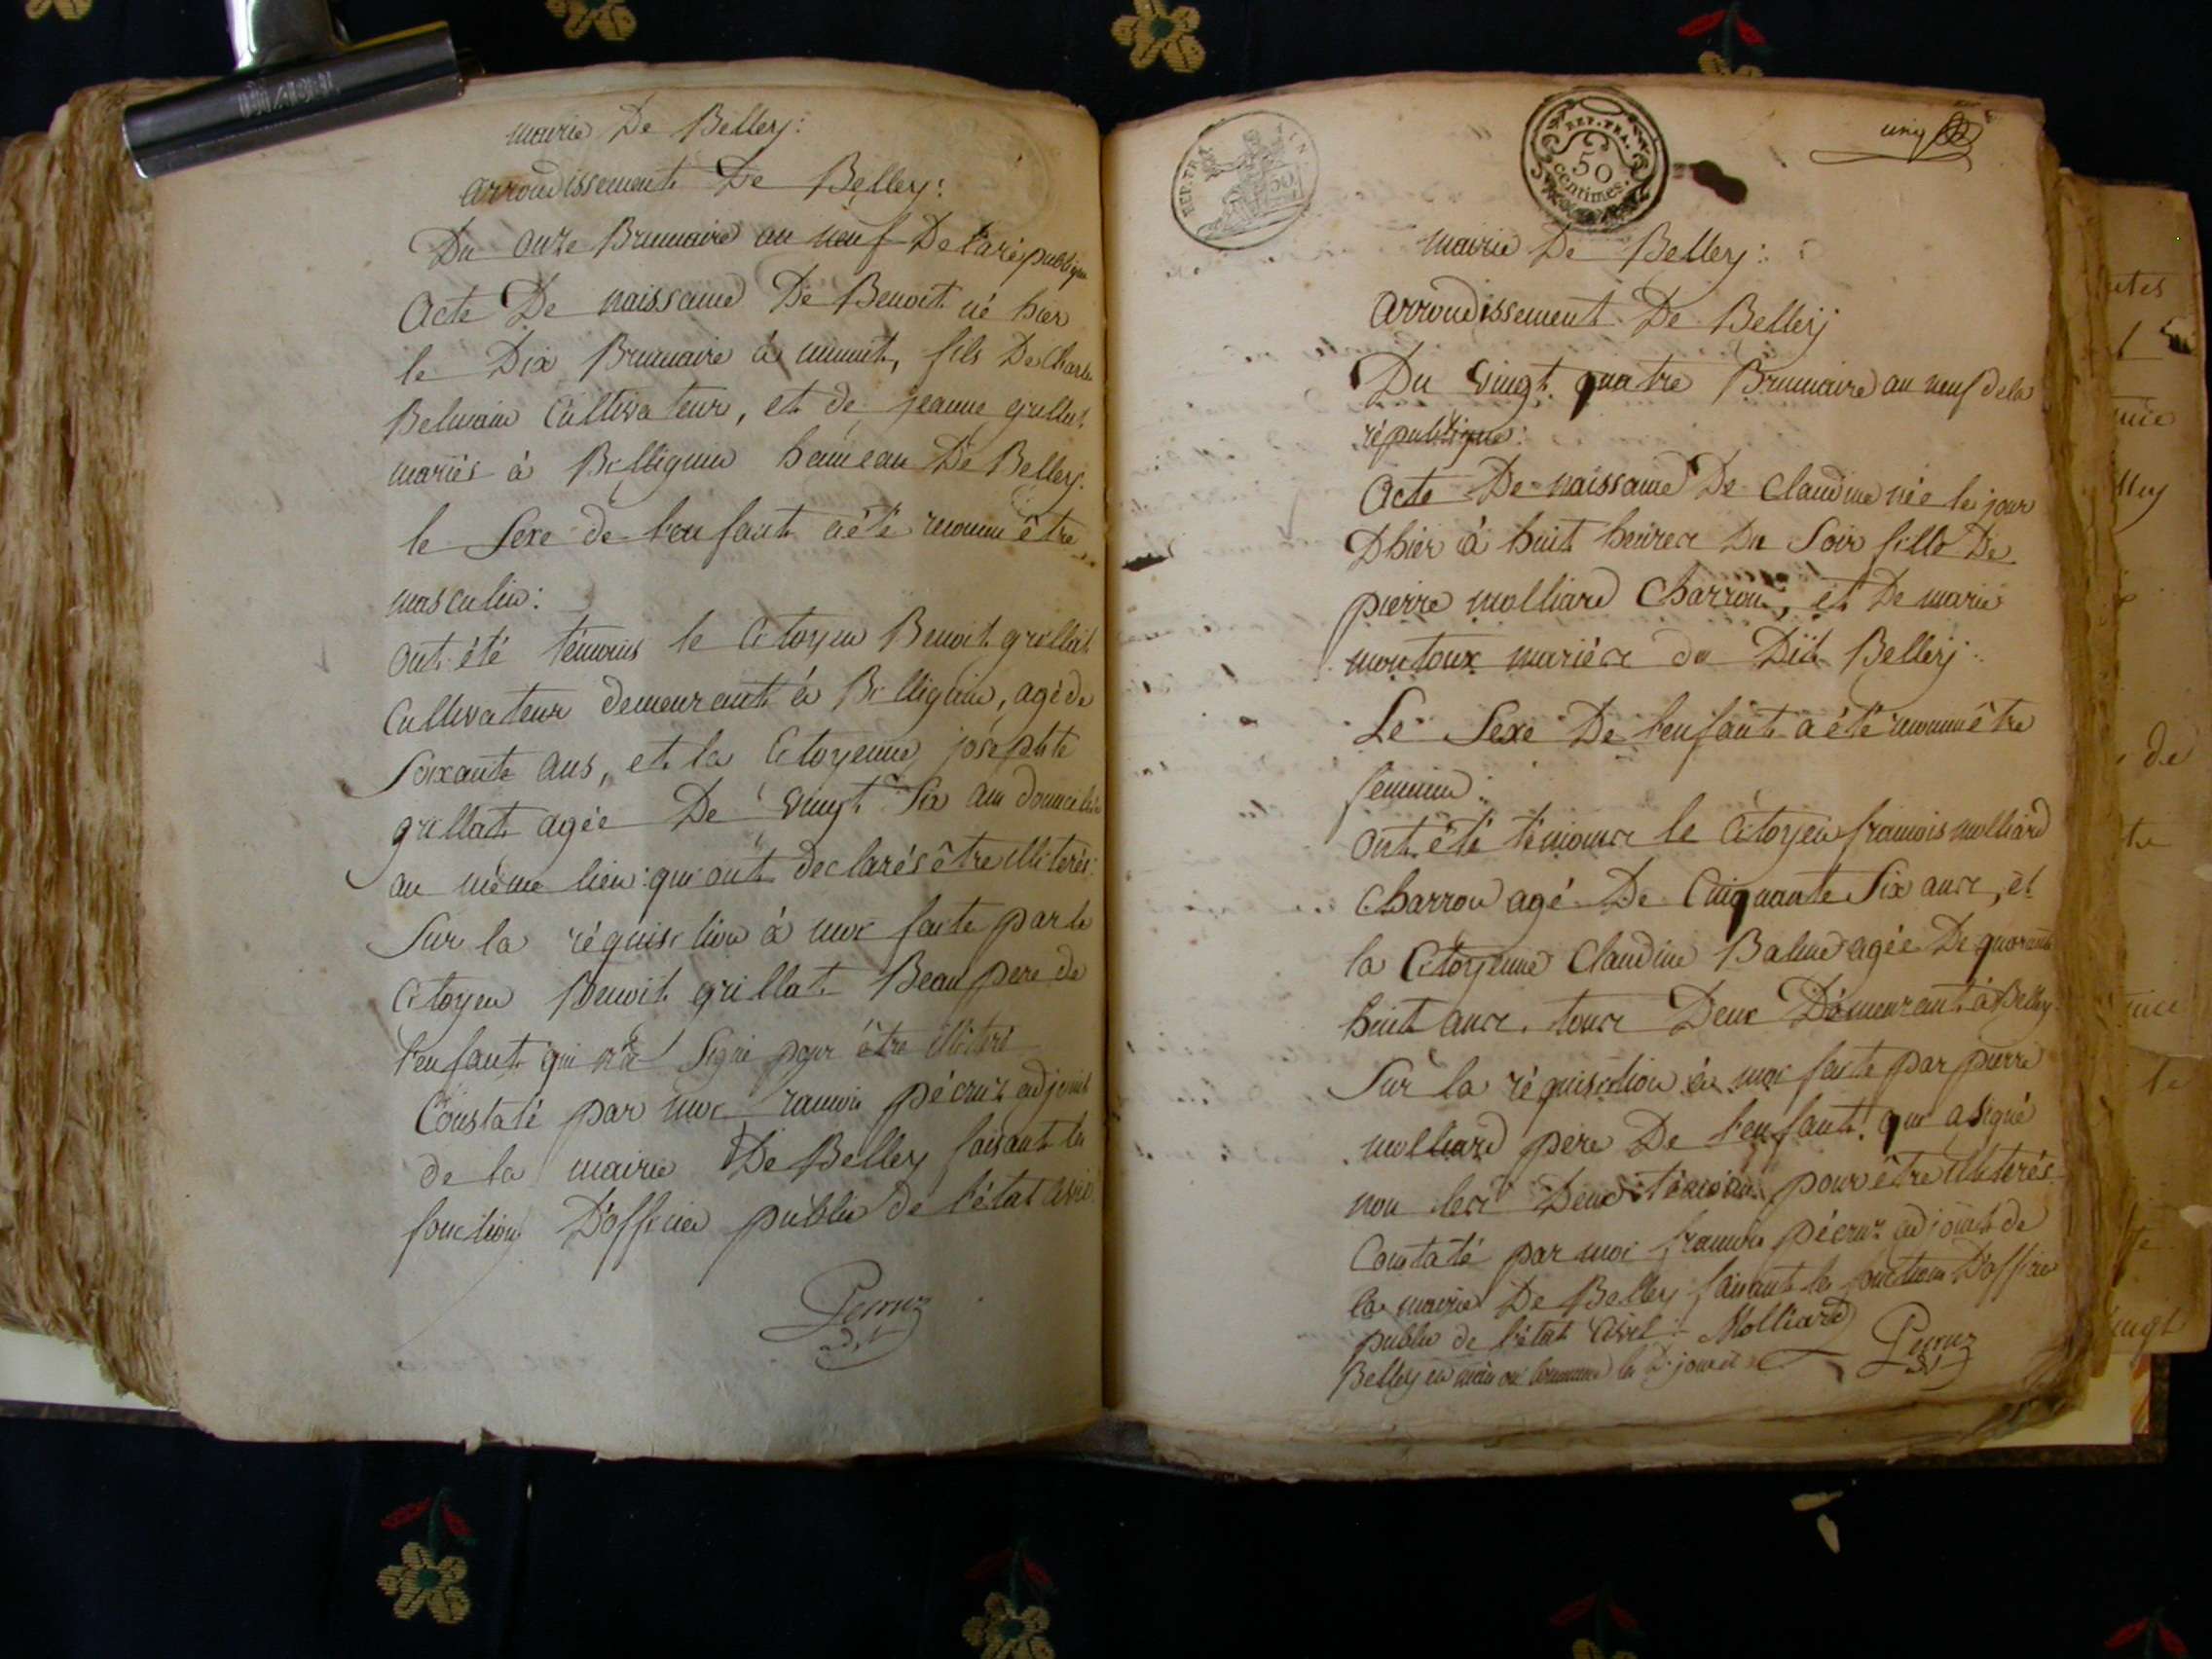 mairie De Belley:
arrondissement De Belley:
Du onze Brumaire an neuf De la république
Acte De naissance De Benoit né hier
le Dix Brumaire à minuit, fils De Charle
Cultivateur, et de jeanne grillat
mariés à Billignin hameau De Belley.
le Sexe de l'enfant a été reconnu être
masculin:
ont été témoins le Citoyen Benoit grillat
Cultivateur demeurant à Billignin, agé de
Soixante ans, et la Citoyenne josephte
grillat agée De vingt Six ans domiciliés
au même lieu: qui ont declarés être illiterés:
Sur la réquisition à moi faite par le
Citoyen Benoit grillat Beaupere de
l'enfant qui n'a Signé pour être illiteré
Constaté par moi francois pécruz adjoint
de la mairie De Belley faisant les
fonctions D'officier public de l'état Civil.
Pecruz
adjt
REP. FRA.
cinq
REP. FRA.
50
centimes.
mairie De Belley:
arrondissement De Belley
Du vingt quatre Brumaire an neuf de la
république:
Acte De naissance De Claudine née le jour
D'hier à huit heures Du Soir fille De
pierre molliard Charron, et De marie
montoux mariés du Dit Belley:
Le Sexe De l'enfant a été reconnu être
feminin:
ont été témoins le Citoyen francois molliard
Charron agé De Cinquante Six ans, et
la Citoyenne Claudine Balme agée De quarante
huit ans. tous Deux Demeurant à Belley.
Sur la réquisition à moi faite par pierre
molliard père De l'enfant. qui a signé
non les Deux témoins pour être illiterés
Constaté par moi francois pécruz adjoint de
la mairie De Belley faisant les fonctions D'officier
public de l'état Civil: Molliard Pecruz
Belley en maison Commune les D. jour et an adjt